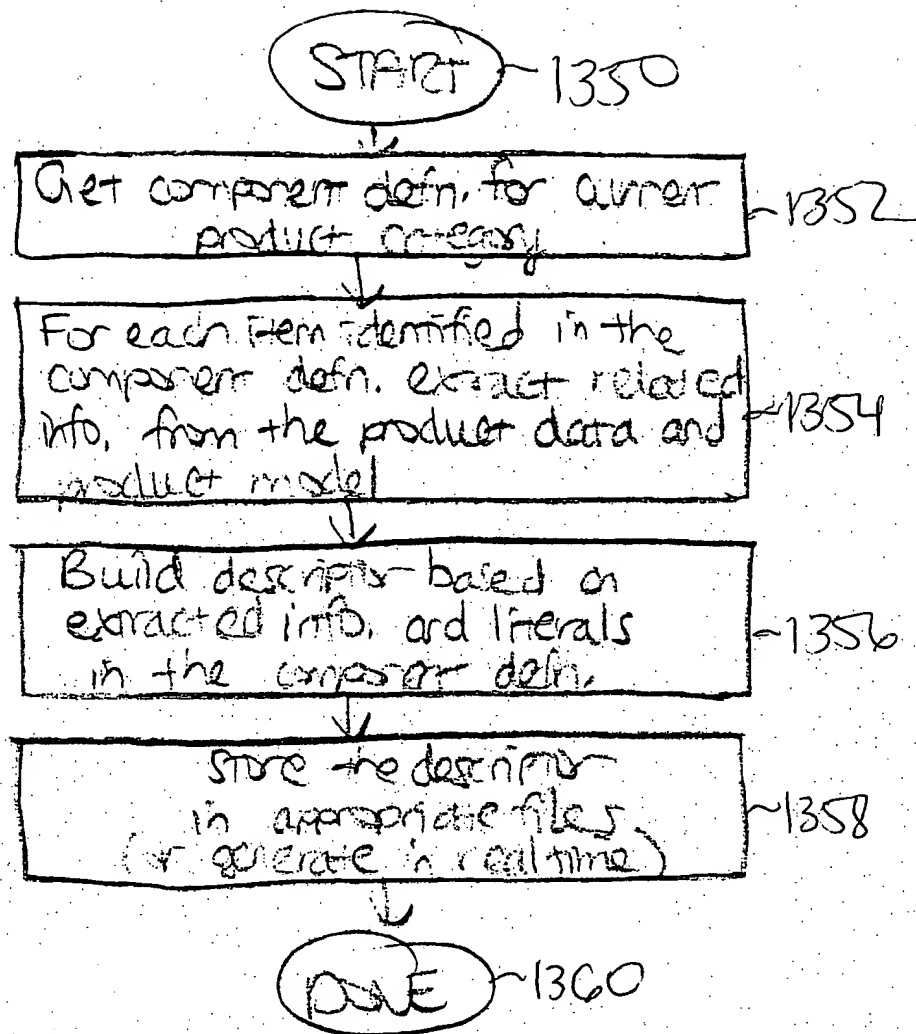 START ~1350
Get component defn. for current
product category ~1352
For each item identified in the
component defn. extract related
info. from the product data and ~1354
product model
Build descriptor based on
extracted info. and literals ~1356
in the component defn.
Store the descriptor
in appropriate files ~1358
(or generate in real time)
DONE ~1360